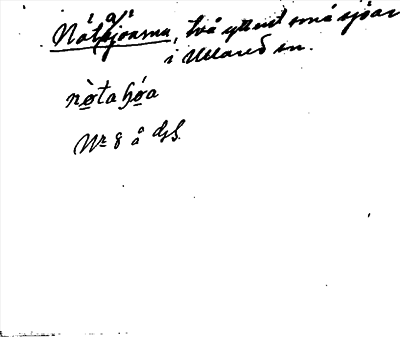 Nåtsjöarna, två ytterst små sjöar
i Ullared sn.
nòtahóa
Nr 8 å